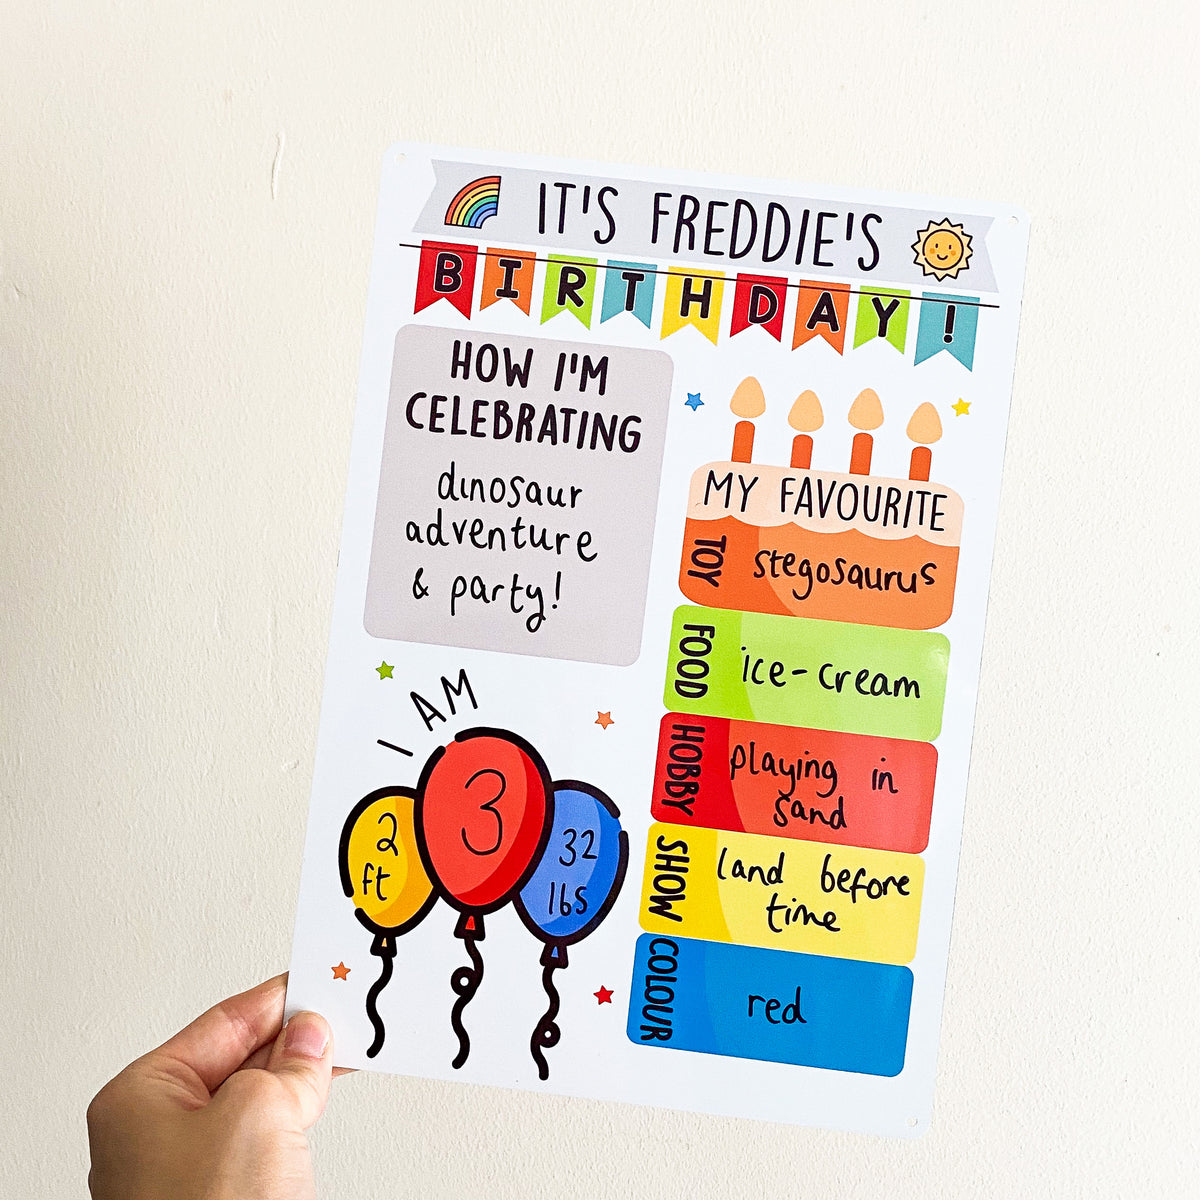 IT'S FREDDIE'S
BIRTHDAY!
HOW I'M
CELEBRATING
dinosaur
adventure
& party!
I AM
2
ft
3
32
lbs
MY FAVOURITE
TOY
stegosaurus
FOOD
ice-cream
HOBBY
playing in
sand
SHOW
land before
time
COLOUR
red